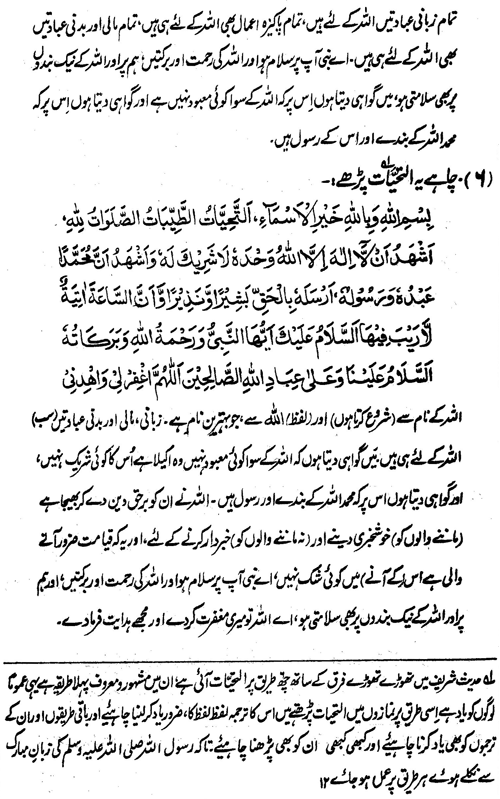 تمام زبانی عبادتیں اللہ کے لئے ہیں، تمام پاکیزہ اعمال بھی اللہ کے لئے ہی ہیں، تمام مالی اور بدنی عبادتیں
بھی اللہ کے لئے ہی ہیں۔ اے نبی آپ پر سلام ہو اور اللہ کی رحمت اور برکتیں ہم پر اور اللہ کے نیک بندوں
پر بھی سلامتی ہو، میں گواہی دیتا ہوں اِس پر کہ اللہ کے سوا کوئی معبود نہیں ہے اور گواہی دیتا ہوں اِس پر کہ
محمد اللہ کے بندے اور اس کے رسول ہیں۔
(۶)۔ چاہے یہ التحیّات لہ پڑھے:۔
بِسْمِ اللهِ وَبِاللهِ خَيْرِ الْاَسْمَآءِ، اَلتَّحِيَّاتُ الطَّيِّبَاتُ الصَّلَوَاتُ لِلّٰهِ،
اَشْهَدُ اَنْ لَّآ اِلٰهَ اِلَّا اللهُ وَحْدَهٗ لَا شَرِيْكَ لَهٗ وَاَشْهَدُ اَنَّ مُحَمَّدًا
عَبْدُهٗ وَرَسُوْلُهٗ، اَرْسَلَهٗ بِالْحَقِّ بَشِيْرًا وَّنَذِيْرًا وَّاَنَّ السَّاعَةَ اٰتِيَةٌ
لَّا رَيْبَ فِيْهَا اَلسَّلَامُ عَلَيْكَ اَيُّهَا النَّبِيُّ وَرَحْمَةُ اللهِ وَبَرَكَاتُهٗ
اَلسَّلَامُ عَلَيْنَا وَعَلٰى عِبَادِ اللهِ الصَّالِحِيْنَ اَللّٰهُمَّ اغْفِرْ لِيْ وَاهْدِنِيْ
اللہ کے نام سے (شروع کرتا ہوں) اور (لفظ) اللہ سے، جو بہترین نام ہے۔ زبانی، مالی اور بدنی عبادتیں (سب)
اللہ کے لئے ہی ہیں میں گواہی دیتا ہوں کہ اللہ کے سوا کوئی معبود نہیں وہ اکیلا ہے اُس کا کوئی شریک نہیں،
اور گواہی دیتا ہوں اس پر کہ محمد اللہ کے بندے اور رسول ہیں۔ اللہ نے ان کو برحق دین دے کر بھیجا ہے
(ماننے والوں کو) خوشخبری دینے اور (نہ ماننے والوں کو) خبردار کرنے کے لئے، اور یہ کہ قیامت ضرور آنے
والی ہے اس (کے آنے) میں کوئی شک نہیں، اے نبی آپ پر سلام ہو اور اللہ کی رحمت اور برکتیں، اور ہم
پر اور اللہ کے نیک بندوں پر بھی سلامتی ہو، اے اللہ تو میری مغفرت کر دے اور مجھے ہدایت فرما دے۔
لہ حدیث شریف میں تھوڑے تھوڑے فرق کے ساتھ چھ طریق پر التحیّات آئی ہے، ان میں مشہور و معروف پہلا طریقہ ہے یہی عموماً
لوگوں کو یاد ہے اسی طریق پر نمازوں میں التحیات پڑھتے ہیں اس کا ترجمہ لفظ لفظ کا، ضرور یاد کر لینا چاہیے اور باقی طریقوں اور ان کے
ترجموں کو بھی یاد کرنا چاہیئے اور کبھی کبھی ان کو بھی پڑھنا چاہیئے تاکہ رسول اللہ صلی اللہ علیہ وسلم کی زبان مبارک
سے نکلے ہوئے ہر طریق پر عمل ہو جائے ۱۲